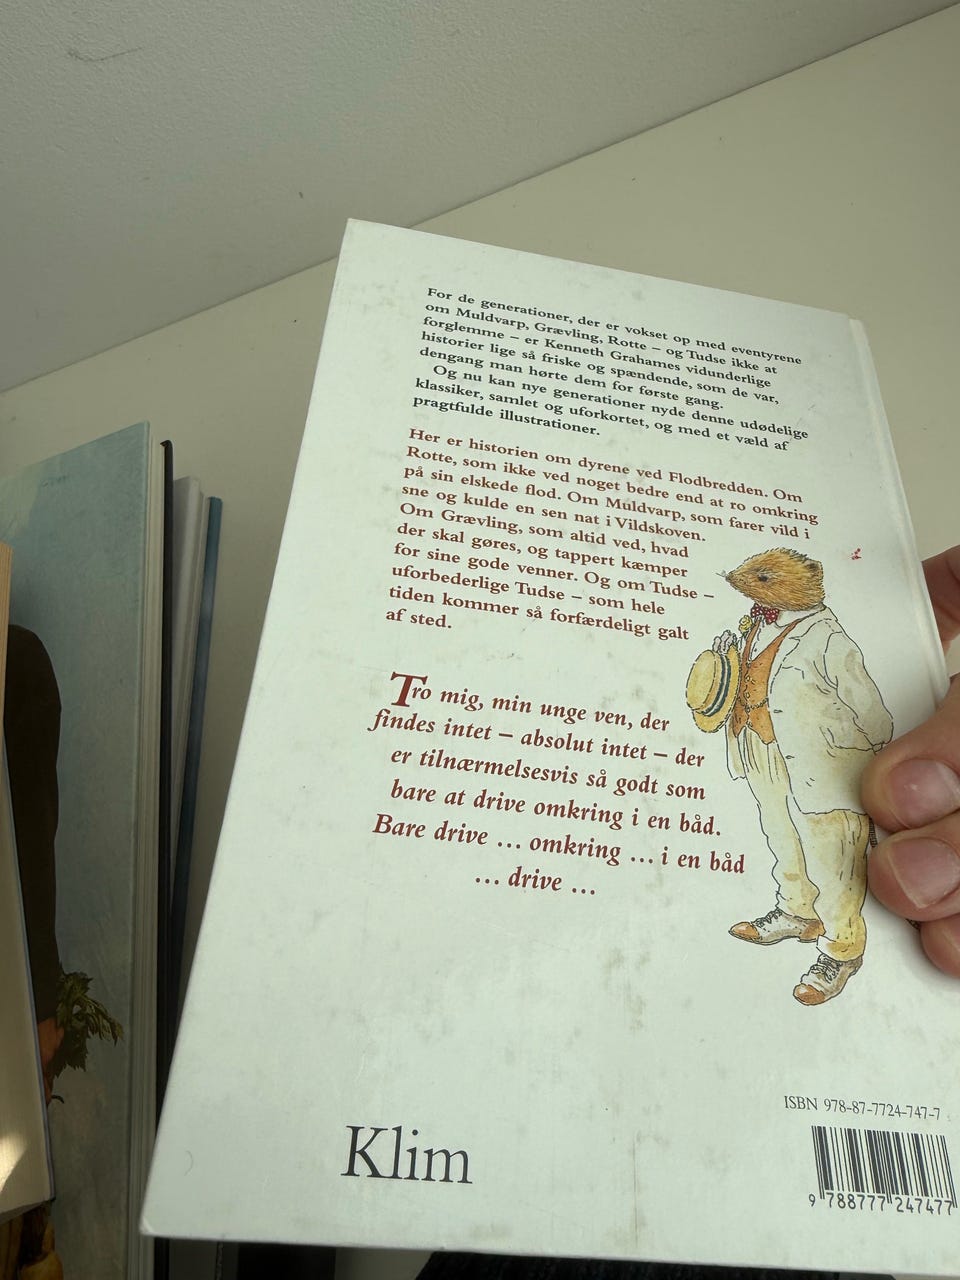 For de generationer, der er vokset op med eventyrene
om Muldvarp, Grævling, Rotte – og Tudse ikke at
forglemme – er Kenneth Grahames vidunderlige
historier lige så friske og spændende, som de var,
dengang man hørte dem for første gang.
Og nu kan nye generationer nyde denne udødelige
klassiker, samlet og uforkortet, og med et væld af
pragtfulde illustrationer.
Her er historien om dyrene ved Flodbredden. Om
Rotte, som ikke ved noget bedre end at ro omkring
på sin elskede flod. Om Muldvarp, som farer vild i
sne og kulde en sen nat i Vildskoven.
Om Grævling, som altid ved, hvad
der skal gøres, og tappert kæmper
for sine gode venner. Og om Tudse –
uforbederlige Tudse – som hele
tiden kommer så forfærdeligt galt
af sted.
Tro mig, min unge ven, der
findes intet – absolut intet – der
er tilnærmelsesvis så godt som
bare at drive omkring i en båd.
Bare drive ... omkring ... i en båd
... drive ...
Klim
ISBN 978-87-7724-747-7
9 788777 247477